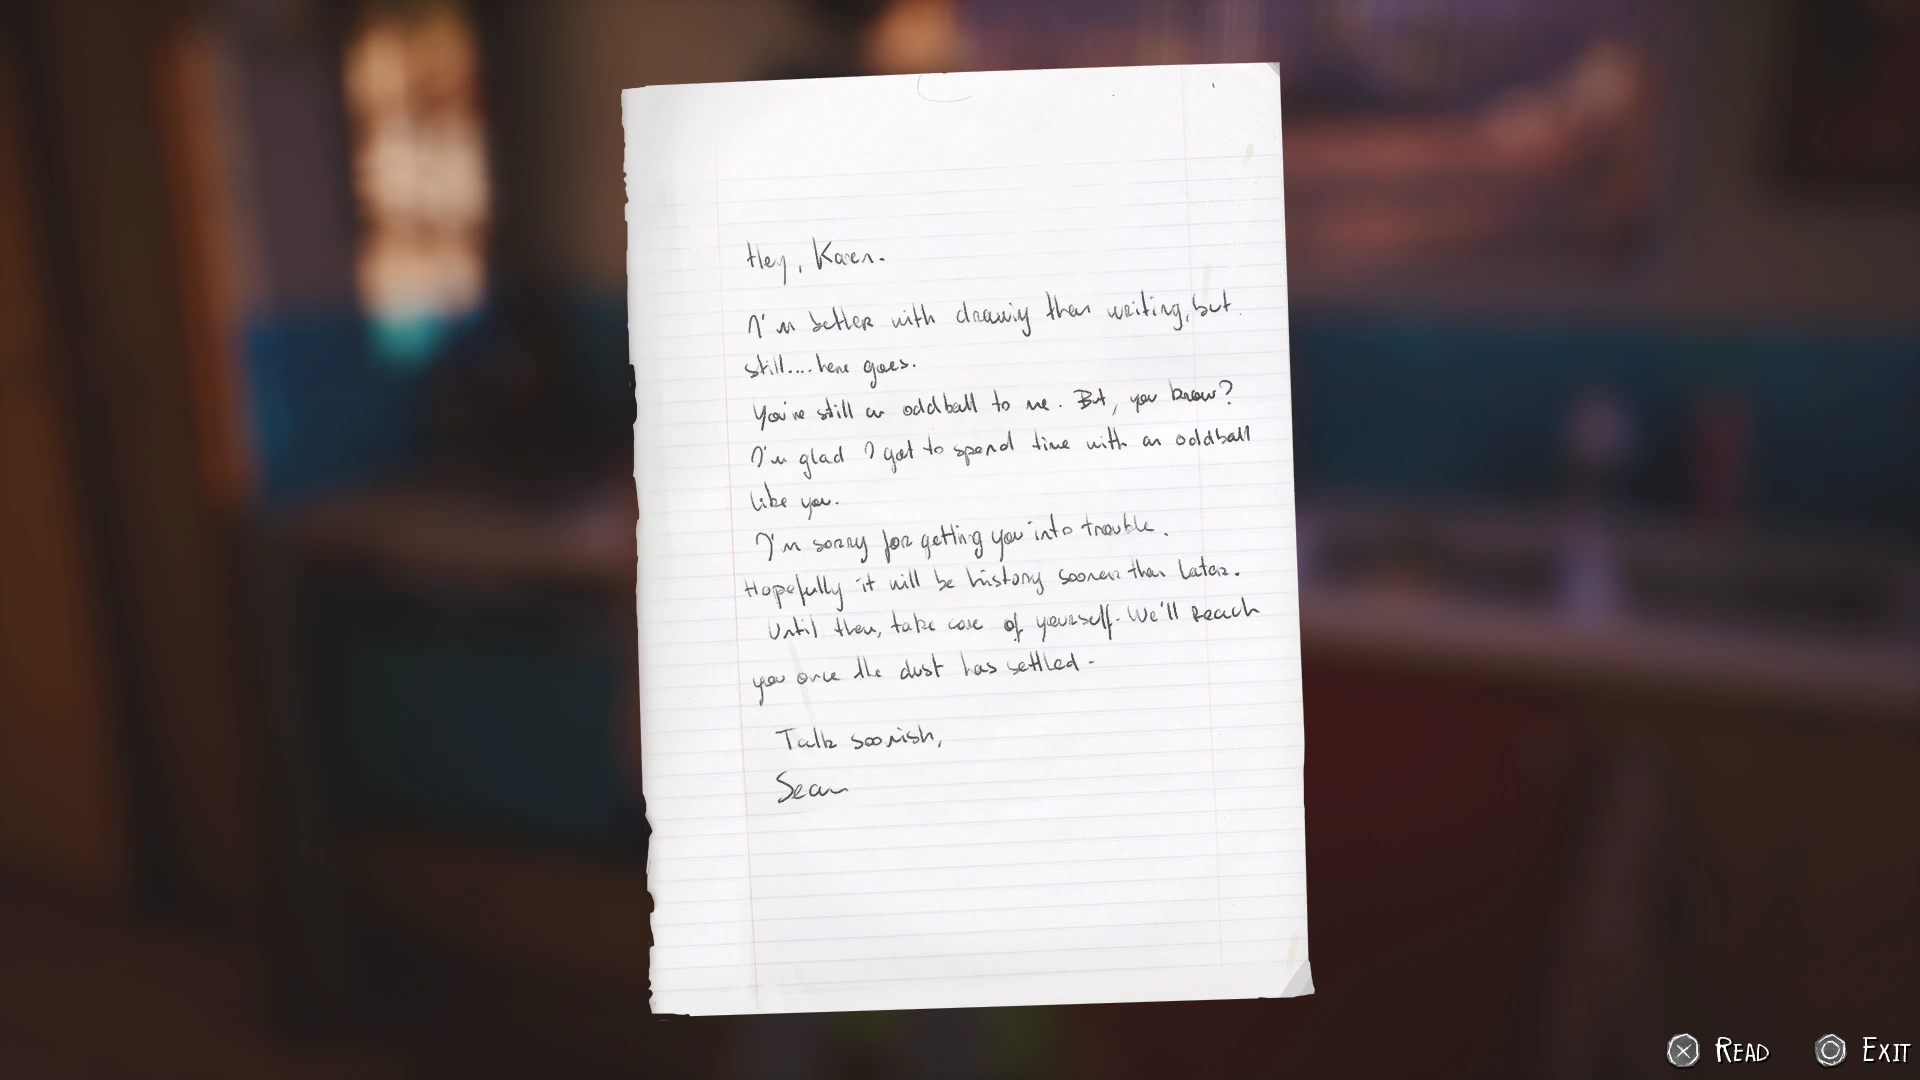 Hey, Karen.
I'm better with drawing than writing, but
still.... here goes.
You're still an oddball to me. But, you know?
I'm glad I got to spend time with an oddball
like you.
I'm sorry for getting you into trouble.
Hopefully it will be history sooner than later.
Until then, take care of yourself. We'll reach
you once the dust has settled.
Talk soonish,
Sean
READ
EXIT